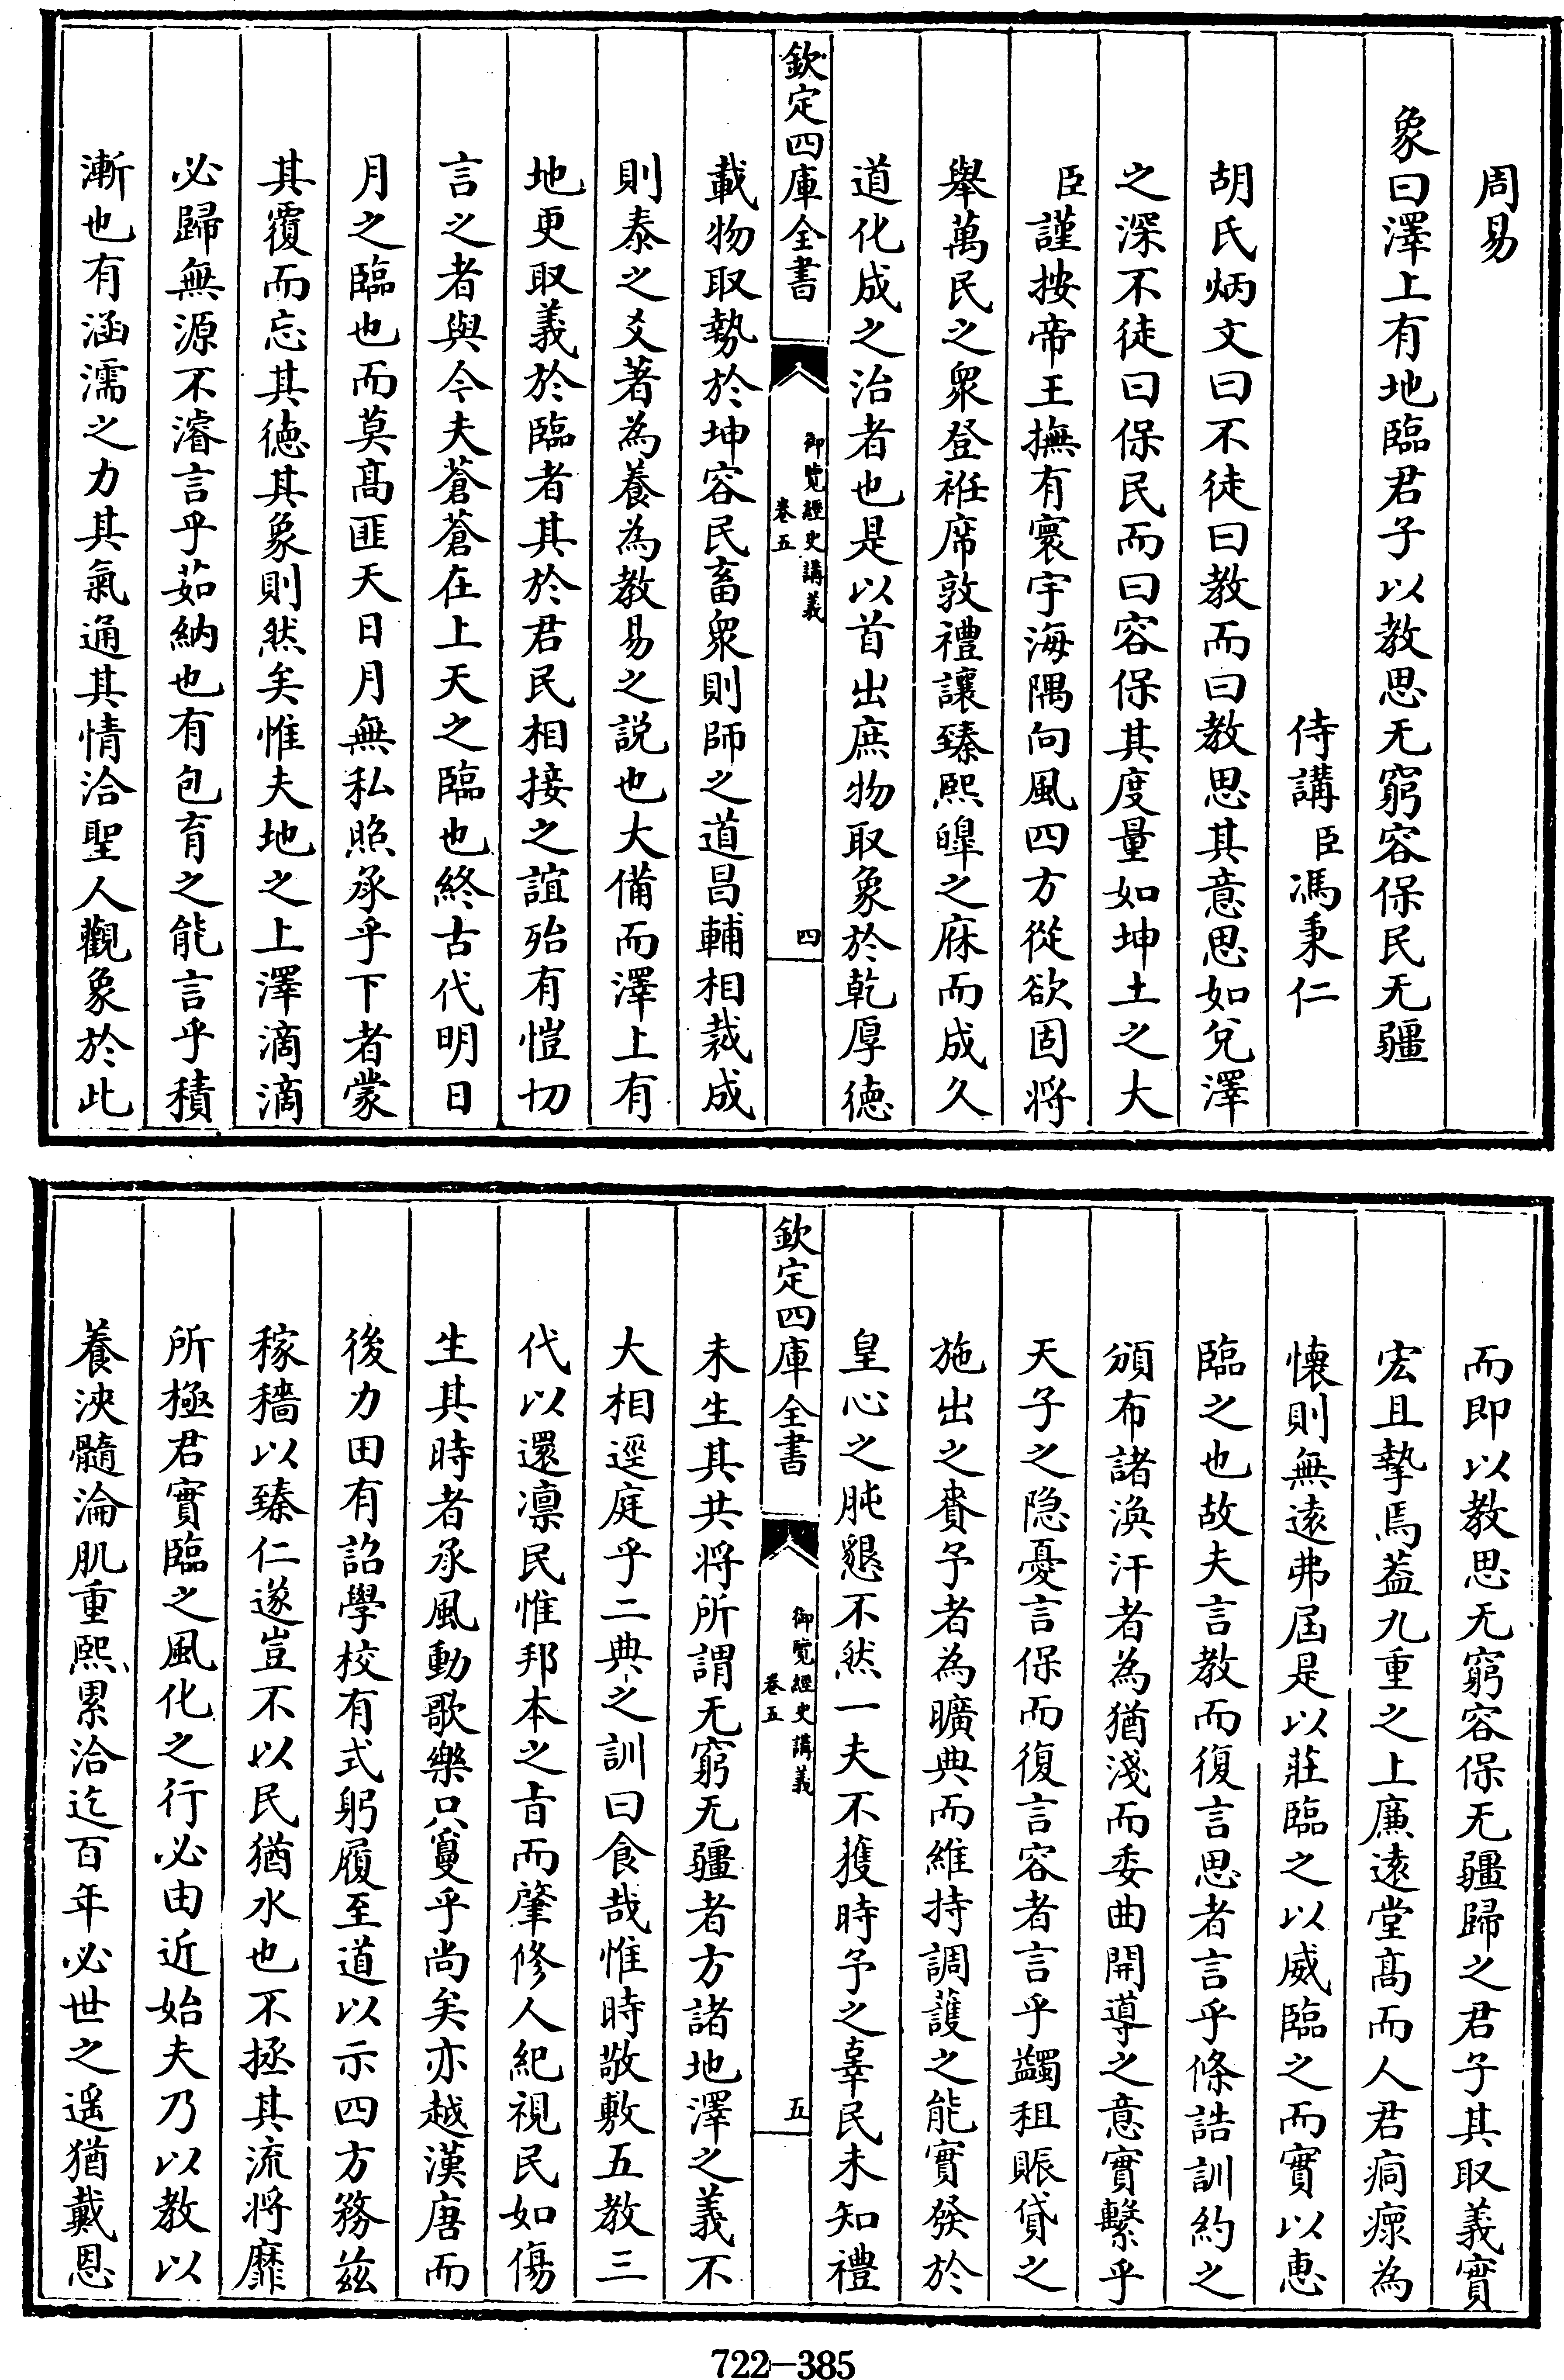 周易
象曰澤上有地臨君子以教思无窮容保民无疆
侍講臣馮秉仁
胡氏炳文曰不徒曰教而曰教思其意思如兌澤
之深不徒曰保民而曰容保其度量如坤土之大
臣謹按帝王撫有寰宇海隅向風四方從欲固將
舉萬民之衆登袵席敦禮讓臻熙皥之庥而成久
道化成之治者也是以首出庶物取象於乾厚德
欽定四庫全書
御覽經史講義
卷五
四
載物取勢於坤容民畜衆則師之道昌輔相裁成
則泰之爻著為養為教易之説也大備而澤上有
地更取義於臨者其於君民相接之誼殆有愷切
言之者與今夫蒼蒼在上天之臨也終古代明日
月之臨也而莫髙匪天日月無私照承乎下者蒙
其覆而忘其德其象則然矣惟夫地之上澤滴滴
必歸無源不濬言乎茹納也有包育之能言乎積
漸也有涵濡之力其氣通其情洽聖人觀象於此
而即以教思无窮容保无疆歸之君子其取義實
宏且摯焉葢九重之上廉遠堂髙而人君痌瘝為
懷則無遠弗屆是以莊臨之以威臨之而實以恵
臨之也故夫言教而復言思者言乎條誥訓約之
頒布諸渙汗者為猶淺而委曲開導之意實繫乎
天子之隠憂言保而復言容者言乎蠲租賑貸之
施出之賚予者為曠典而維持調護之能實發於
皇心之肫懇不然一夫不獲時予之辜民未知禮
欽定四庫全書
御覽經史講義
卷五
五
未生其共將所謂无窮无疆者方諸地澤之義不
大相逕庭乎二典之訓曰食哉惟時敬敷五教三
代以還凛民惟邦本之㫖而肇修人紀視民如傷
生其時者承風動歌樂只敻乎尚矣亦越漢唐而
後力田有詔學校有式躬履至道以示四方務兹
稼穡以臻仁遂豈不以民猶水也不拯其流將靡
所極君實臨之風化之行必由近始夫乃以教以
養浹髓淪肌重熙累洽迄百年必世之遥猶戴恩
722-385